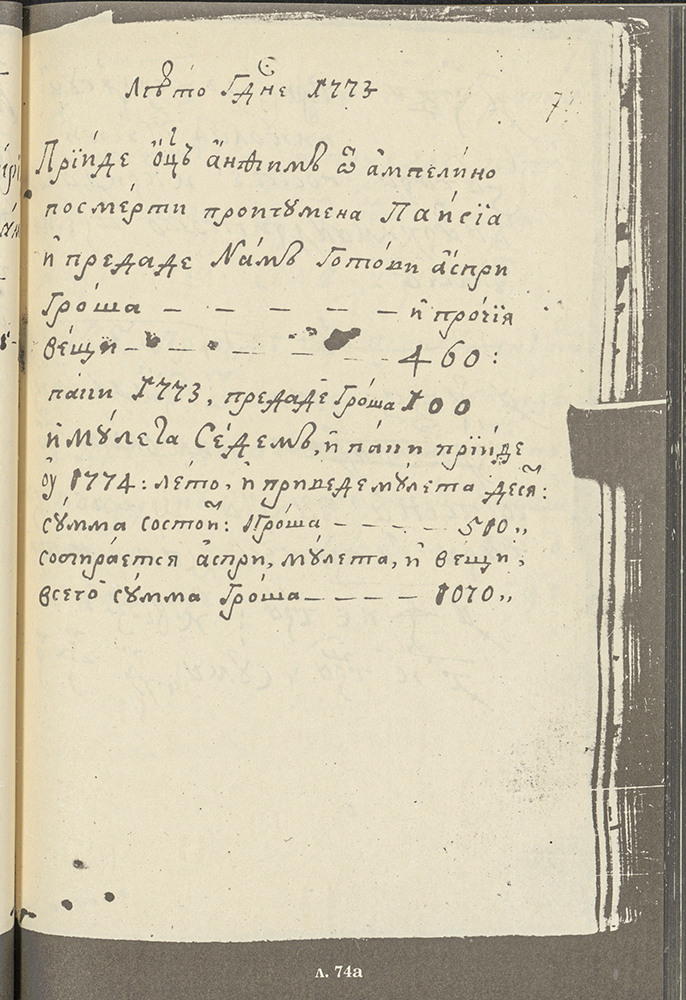 Лѣто Гдⷭ҇не 1773
Прїиде ѻц҃ъ анѳимъ ѿ ампелино
по смерти проигумена Паисїа
и предаде Намъ Готови аспри
Гроша — — — — — и прочїѧ
вещи — — — — — 460:
паки 1773, предаде Гроша 100
и мулета Седемъ, и паки прїиде
ꙋ 1774: лето, и приведе мулета десѧⷮ:
сумма состоиⷮ: Гроша — — — — 510,,
собирается аспри, мулета, и вещи,
всего сумма Гроша — — — — 1070,,
л. 74а